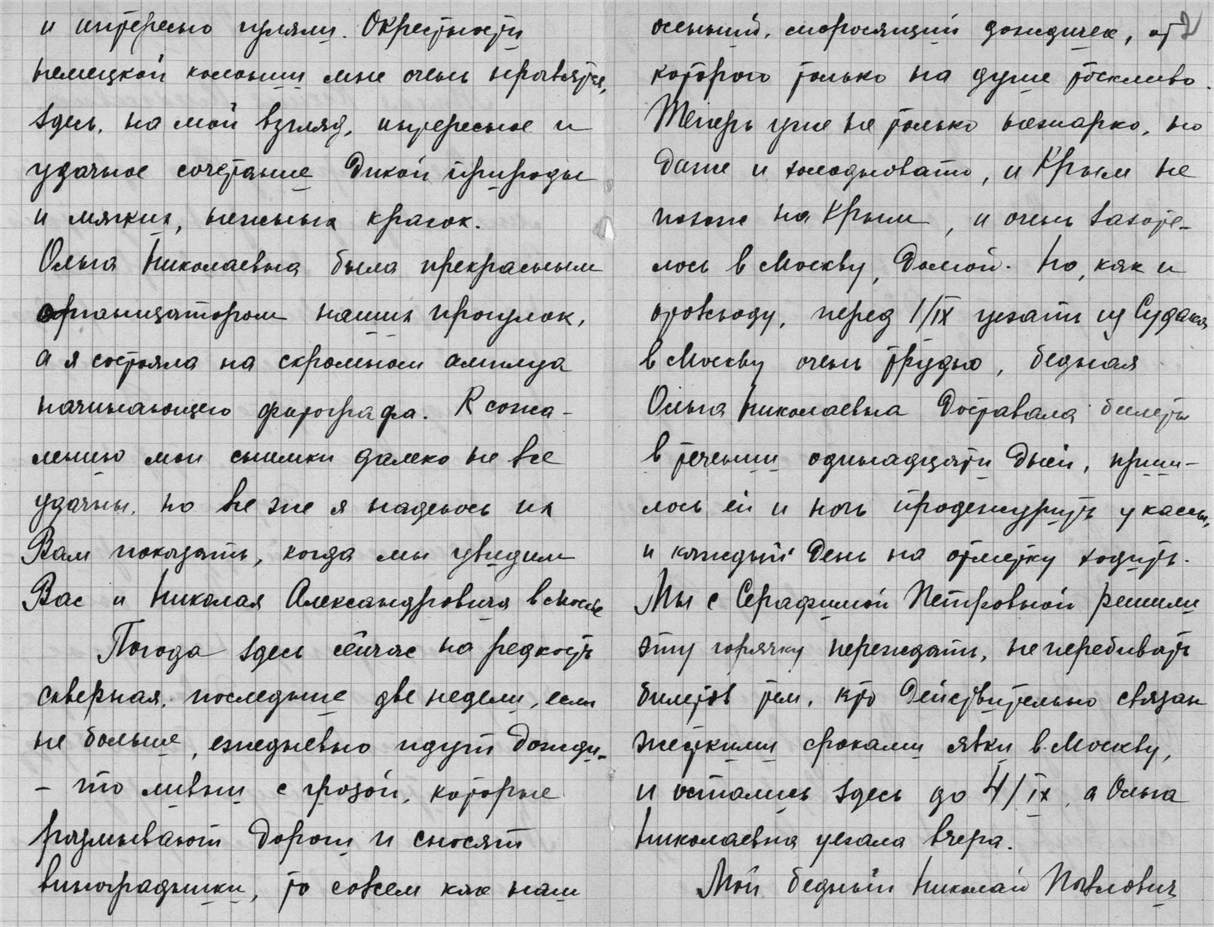 и интересно гуляли. Окрестности
немецкой колонии мне очень нравятся,
здесь, на мой взгляд, интересное и
удачное сочетание дикой природы
и мягких, нежных красок.
Ольга Николаевна была прекрасным
организатором наших прогулок,
а я состояла на скромном амплуа
начинающего фотографа. К сожа-
лению мои снимки далеко не все
удачны, но все же я надеюсь их
Вам показать, когда мы увидим
Вас и Николая Александровича в Москве
Погода здесь сейчас на редкость
скверная, последние две недели, если
не больше, ежедневно идут дожди,
- то ливни с грозой, которые
размывают дороги и сносят
виноградники, то совсем как наш
2
осенний, моросящий дождичек, от
которого только на душе тоскливо.
Теперь уже не только нежарко, но
даже и холодновато, и Крым не
похож на Крым, и очень захоте-
лось в Москву, домой. Но, как и
отовсюду, перед 1/IX уехать из Судака
в Москву очень трудно, бедная
Ольга Николаевна доставала билеты
в течении одинадцати дней, приш-
лось ей и ночь продежурить у кассы,
и каждый день на отметку ходить.
Мы с Серафимой Петровной решили
эту горячку переждать, не перебивать
билетов тем, кто действительно связан
жесткими сроками явки в Москву,
и остались здесь до 4/IX, а Ольга
Николаевна уехала вчера.
Мой бедный Николай Павлович